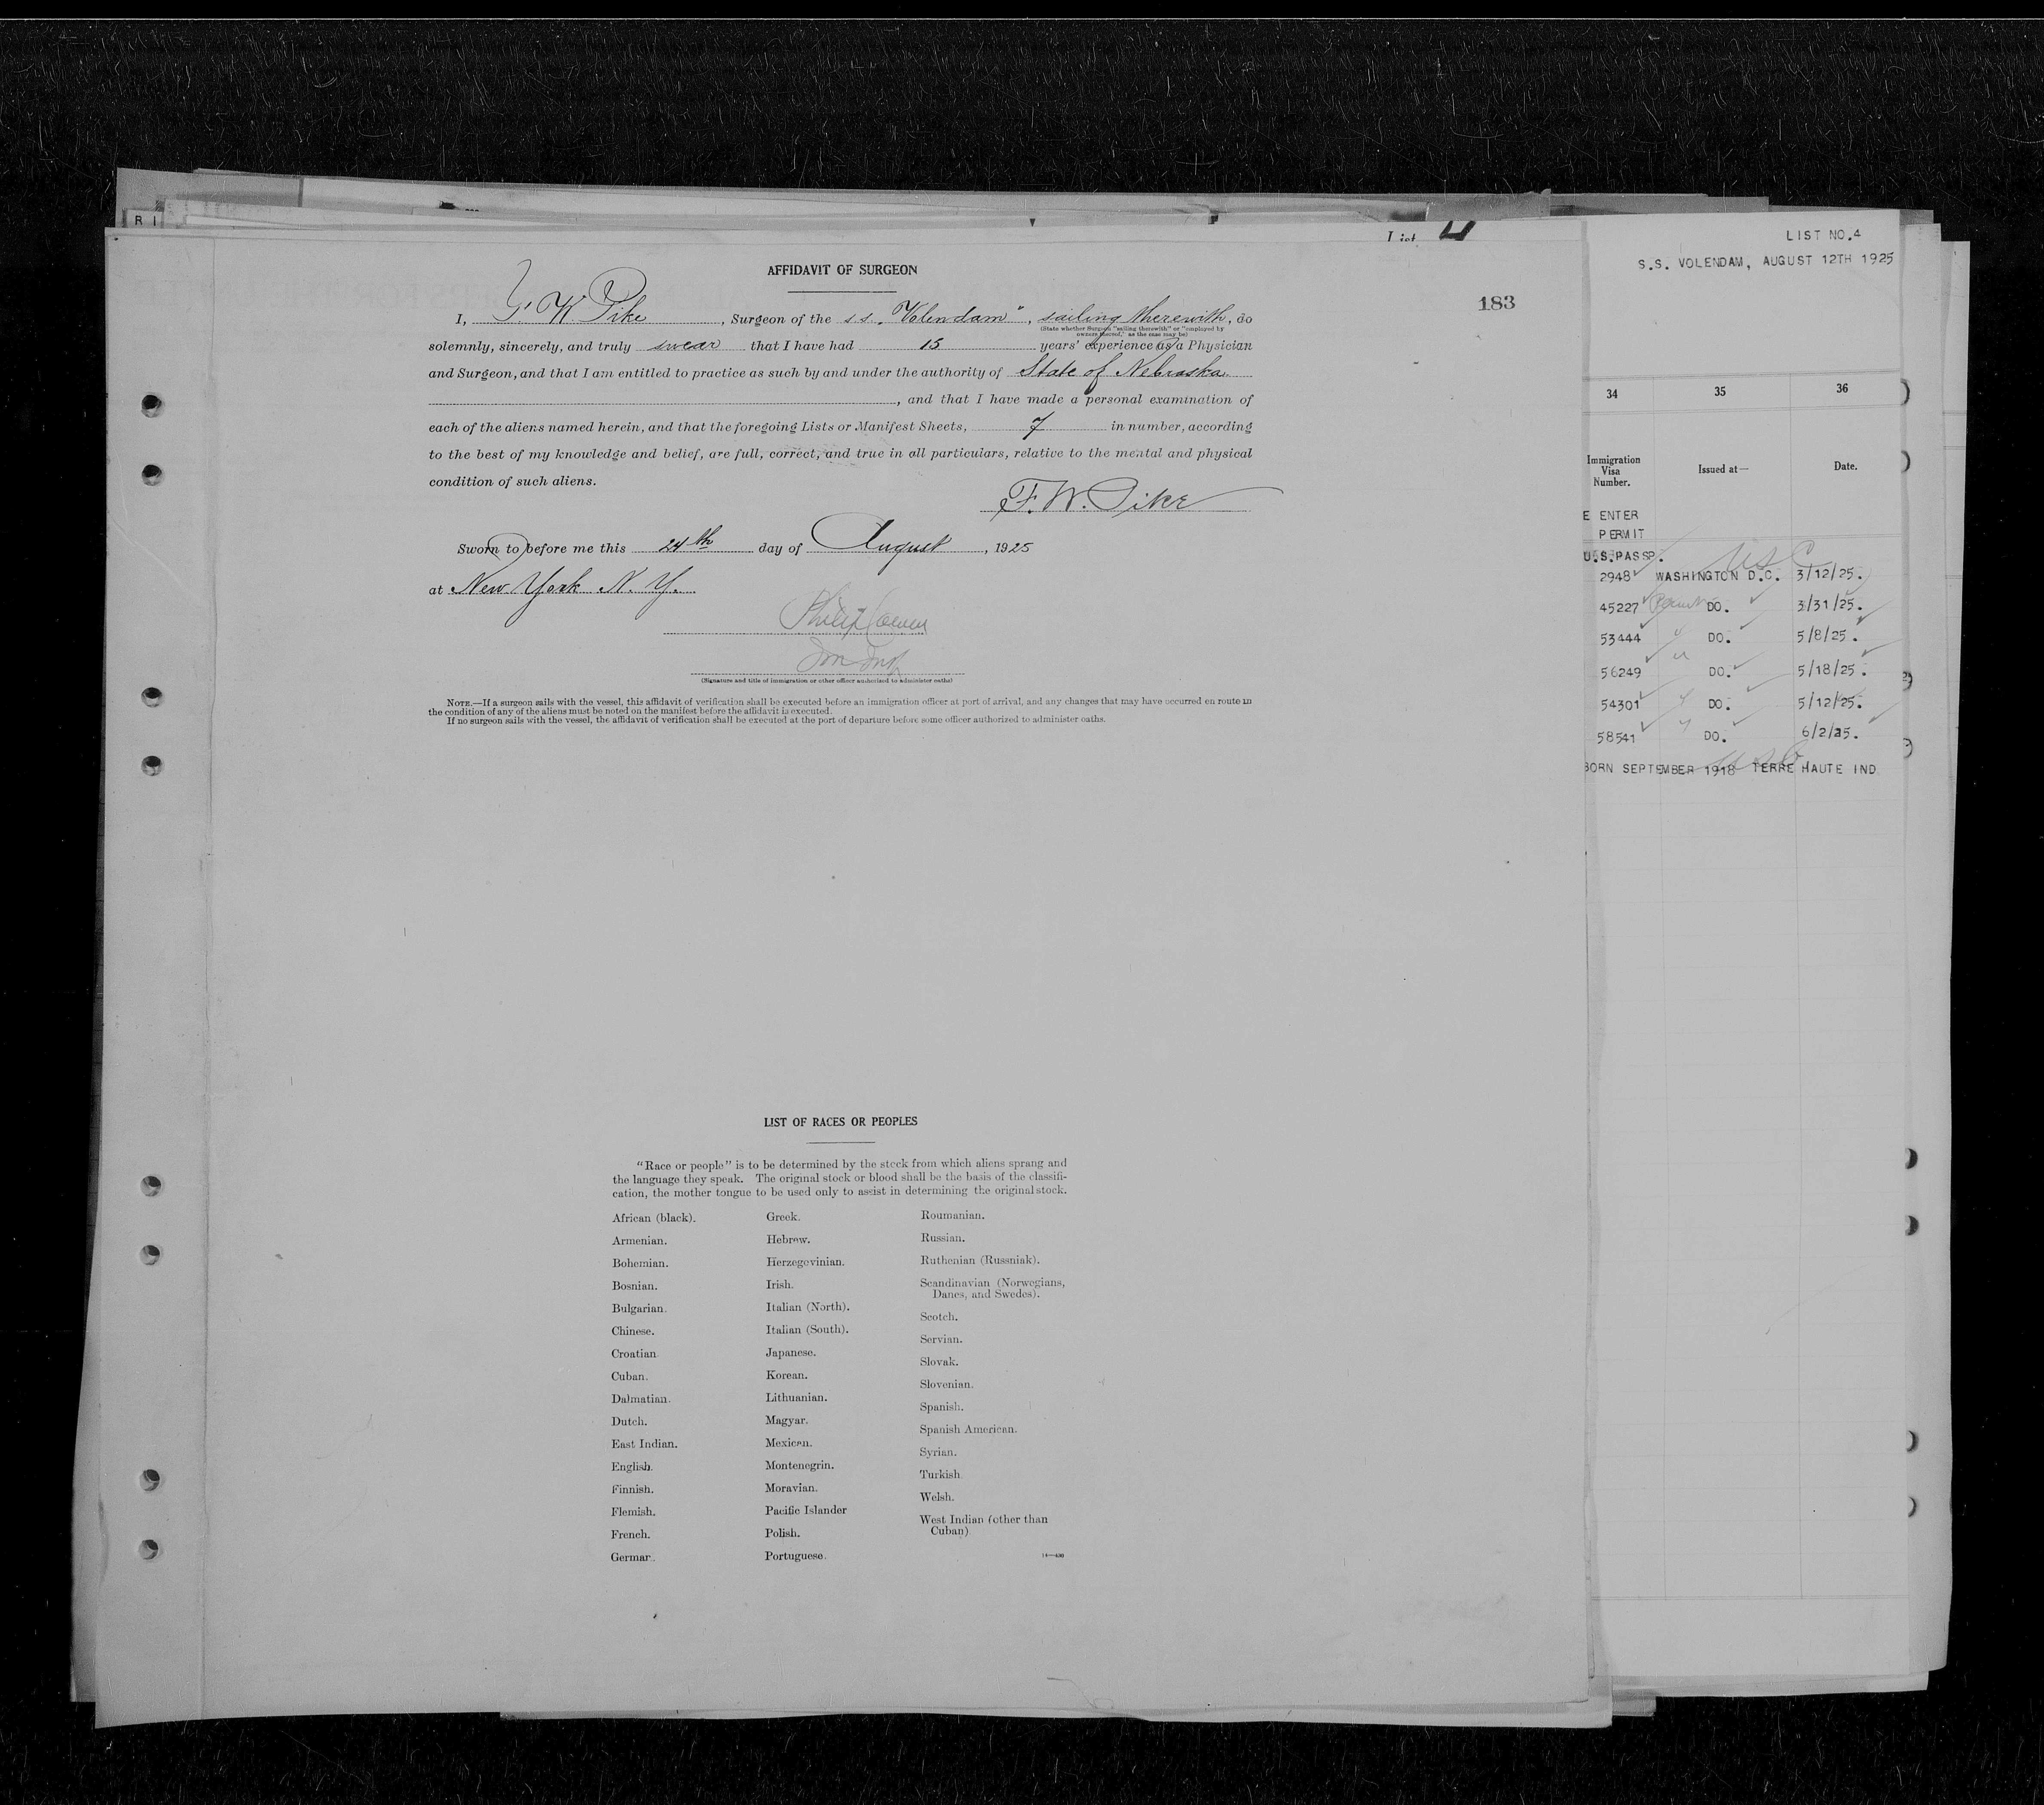 B I
List
LIST NO.4
S.S. VOLENDAM, AUGUST 12TH 1925
183
AFFIDAVIT OF SURGEON
I, F. W. Pike, Surgeon of the s.s. "Volendam", sailing therewith, do
(State whether Surgeon "sailing therewith" or "employed by
owners thereof," as the case may be)
solemnly, sincerely, and truly swear that I have had 15 years' experience as a Physician
and Surgeon, and that I am entitled to practice as such by and under the authority of State of Nebraska
, and that I have made a personal examination of
each of the aliens named herein, and that the foregoing Lists or Manifest Sheets, 7 in number, according
to the best of my knowledge and belief, are full, correct, and true in all particulars, relative to the mental and physical
condition of such aliens.
F. W. Pike
Sworn to before me this 24th day of August, 1925
at New York N. Y.
Philip Cowen
(Signature and title of immigration or other officer authorized to administer oaths)
NOTE.—If a surgeon sails with the vessel, this affidavit of verification shall be executed before an immigration officer at port of arrival, and any changes that may have occurred en route in
the condition of any of the aliens must be noted on the manifest before the affidavit is executed.
If no surgeon sails with the vessel, the affidavit of verification shall be executed at the port of departure before some officer authorized to administer oaths.
LIST OF RACES OR PEOPLES
"Race or people" is to be determined by the stock from which aliens sprang and
the language they speak. The original stock or blood shall be the basis of the classifi-
cation, the mother tongue to be used only to assist in determining the original stock.
African (black).
Armenian.
Bohemian.
Bosnian.
Bulgarian.
Chinese.
Croatian
Cuban.
Dalmatian.
Dutch.
East Indian.
English.
Finnish.
Flemish.
French.
German.
Greek.
Hebrew.
Herzegovinian.
Irish.
Italian (North).
Italian (South).
Japanese.
Korean.
Lithuanian.
Magyar.
Mexican.
Montenegrin.
Moravian.
Pacific Islander
Polish.
Portuguese.
Roumanian.
Russian.
Ruthenian (Russniak).
Scandinavian (Norwegians,
Danes, and Swedes).
Scotch.
Servian.
Slovak.
Slovenian.
Spanish.
Spanish American.
Syrian.
Turkish.
Welsh.
West Indian (other than
Cuban)
14—430
34 35 36
Immigration
Visa
Number.
Issued at—
Date.
E ENTER
PERMIT
U.S.PASSP. USC
2948 WASHINGTON D.C. 3/12/25.
45227 DO. 3/31/25.
53444 DO. 5/8/25.
56249 DO. 5/18/25.
54301 DO. 5/12/25.
58541 DO. 6/2/25.
BORN SEPTEMBER 1918 TERRE HAUTE IND